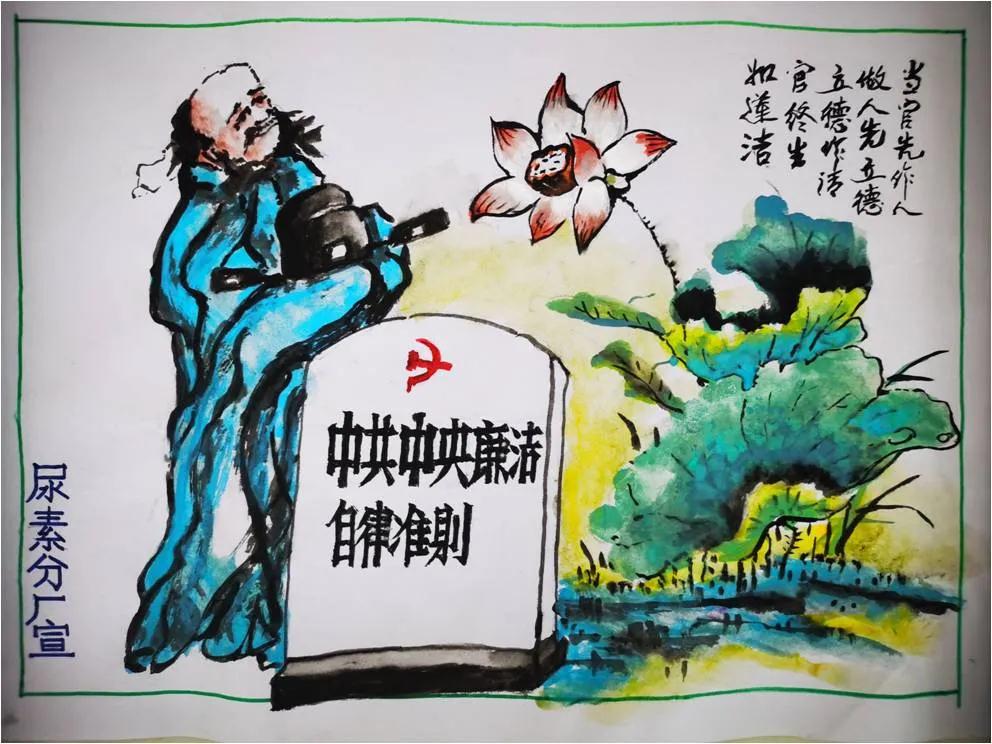 当官先作人
做人先立德
立德作清
官终生
如蓮洁
中共中央廉洁
自律准則
尿素分厂宣